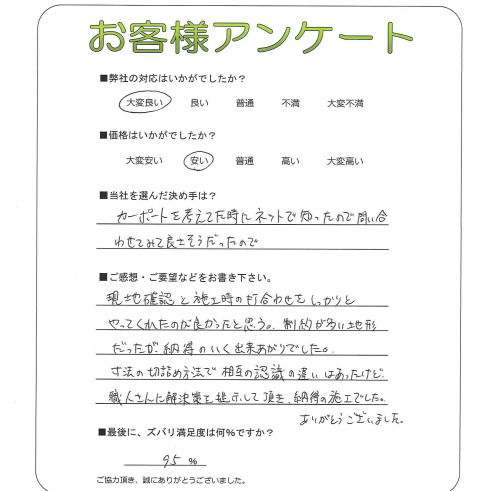 お客様アンケート
■弊社の対応はいかがでしたか？
大変良い 良い 普通 不満 大変不満
■価格はいかがでしたか？
大変安い 安い 普通 高い 大変高い
■当社を選んだ決め手は？
カーポートを考えてた時にネットで知ったので問い合
わせてみて良さそうだったので
■ご感想・ご要望などをお書き下さい。
現地確認と施工時の打合わせをしっかりと
やってくれたのが良かったと思う。制約が多い地形
だったが、納得のいく出来あがりでした。
寸法の切詰め方法で相互の認識の違いはあったけど、
職人さんに解決策を提示して頂き、納得の施工でした。
ありがとうございました。
■最後に、ズバリ満足度は何％ですか？
95 ％
ご協力頂き、誠にありがとうございました。